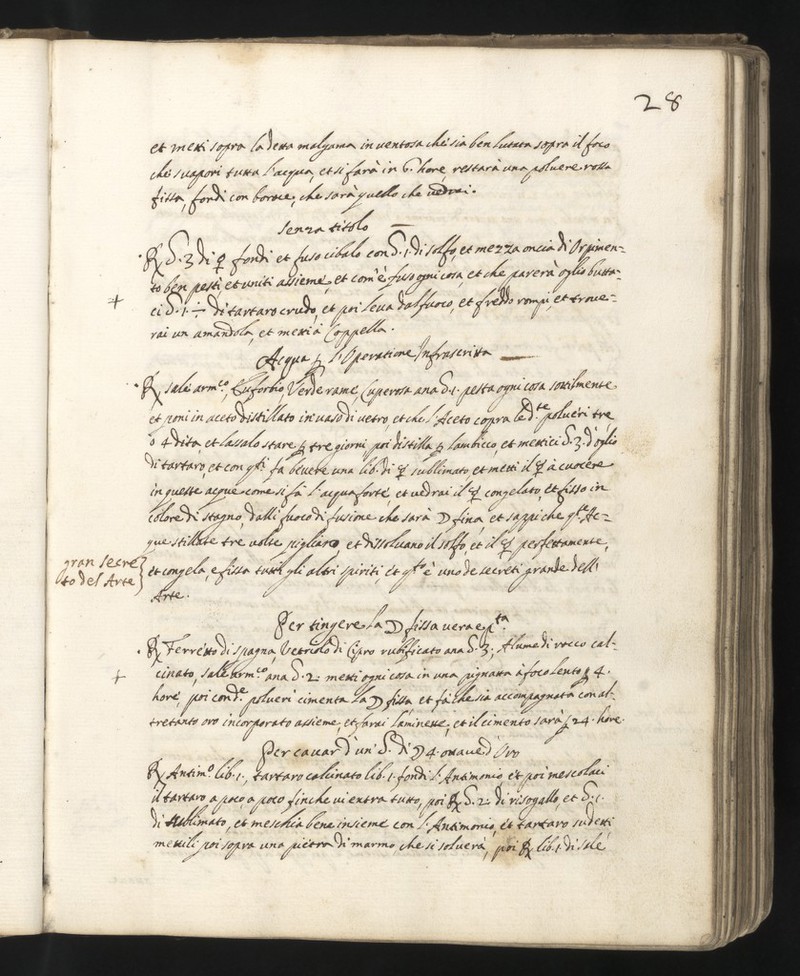 28
et metti sopra la detta malgama in ventosa che sia ben lutata sopra il foco
che svapori tutta l'acqua, et si farà in 6. hore, restarà una polvere rossa
fissa, fondi con borace, che sarà quello che vedrai.
Senza titolo
℞ ℥. 3 di ♀ fondi et fuso cibalo con ℥. 1. di solfo, et mezza oncia di Orpimen=
to ben pesti, et uniti assieme, et com'è fuso ogni cosa, et che parerà oglio butta=
+ ci ℥. 1 ÷ di tartaro crudo, et poi leva dal fuoco, et freddo rompi, et trove=
rai un amandola, et metti à Coppella.
Acqua ꝑ l'Operatione Infrascritta
℞ Sale arm.co, Euforbio, Verde rame Cuperosa ana ℥. 1. pesta ogni cosa sottilmente
et poni in aceto distillato in vaso di vetro, et che l'Aceto copra le d.te polveri tre
ò 4 dita, et lassalo stare ꝑ tre giorni poi distilla ꝑ lambicco, et mettici ℥. 3. d'oglio
di tartaro, et con qti fa bevere una lib. di ☿ sublimato et metti il ☿ à cuocere
in queste acque come si fà l'acqua forte, et vedrai il ☿ congelato, et fisso in
colore di stagno, dalli fuoco di fusione che sarà ☽ fina, et sappi che qte Ac=
que stillate tre volte pigliano, et dissolvano il solfo, et il ☿ perfettamente,
gran secre
to del Arte
et congela, e fissa tutti gli altri spiriti, et qto è uno de secreti grande dell'
Arte.
Per tingere la ☽ fissa vera e ꝑta
℞ Ferretto di spagna, Vetriolo di Cipro rubificato ana ℥. 3. Alume di rocco cal=
+ cinato, sale arm.co ana ℥. 2. metti ogni cosa in una pignatta à foco lento ꝑ 4.
hore, poi con d.e polveri cimenta la ☽ fissa et fà che sia accompagnata con al=
tretanto oro incorporato assieme, et farai laminette, et il cimento sarà ꝑ 24. hore.
Per cavar d'un' ℥. di ☽ 4. ottave d'Oro
℞ Antim.o lib. 1., tartaro calcinato lib. 1. fondi l'Antimonio et poi mescolaci
il tartaro a poco, a poco finche vi entra tutto, poi ℞ ℥. 2. di risogallo, et ℥. 1.
di sublimato, et meschia bene insieme con l'Antimonio, et tartaro sudetti
mettili poi sopra una pietra di marmo che si solverà, poi ℞ lib. 1. di Sale